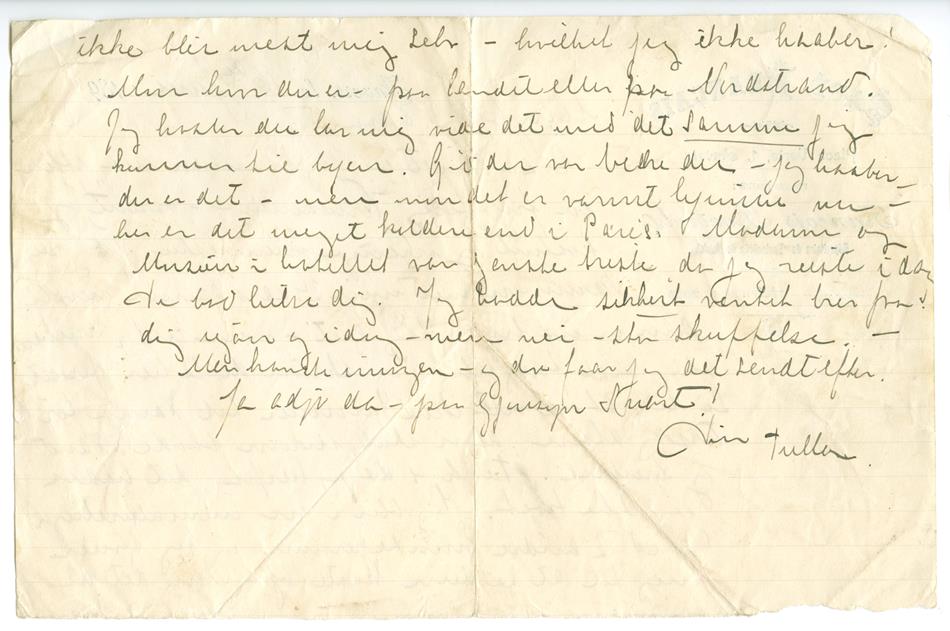 ikke blir mest mig selv – hvilket jeg ikke haaber!
Men hvor du er – paa landet eller paa Nordstrand.
Jeg haaber du lar mig vide det med det samme jeg
kommer til byen. Gid du var bedre du – jeg haaber
du er det – men nu det er varmt hjemme nu –
her er det meget koldere end i Paris. Madame og
Musiør i hotellet var ganske triste da jeg reiste idag
De bad hilse dig. Jeg hadde sikkert ventet brev fra
dig igaar og idag – men nei – stor skuffelse. –
Men kanske imorgen – og da faar jeg det sendt efter.
Ja adjø da – paa gjensyn snart!
Din Tulla.